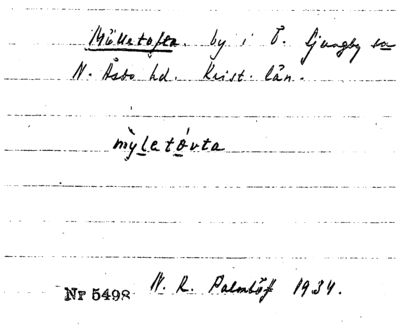 Mölletofta. by i Ö. Ljungby sn
N. Åsbo hd. Krist. län.
my̆letóvta
Nr 5498 N. R. Palmlöf 1934.